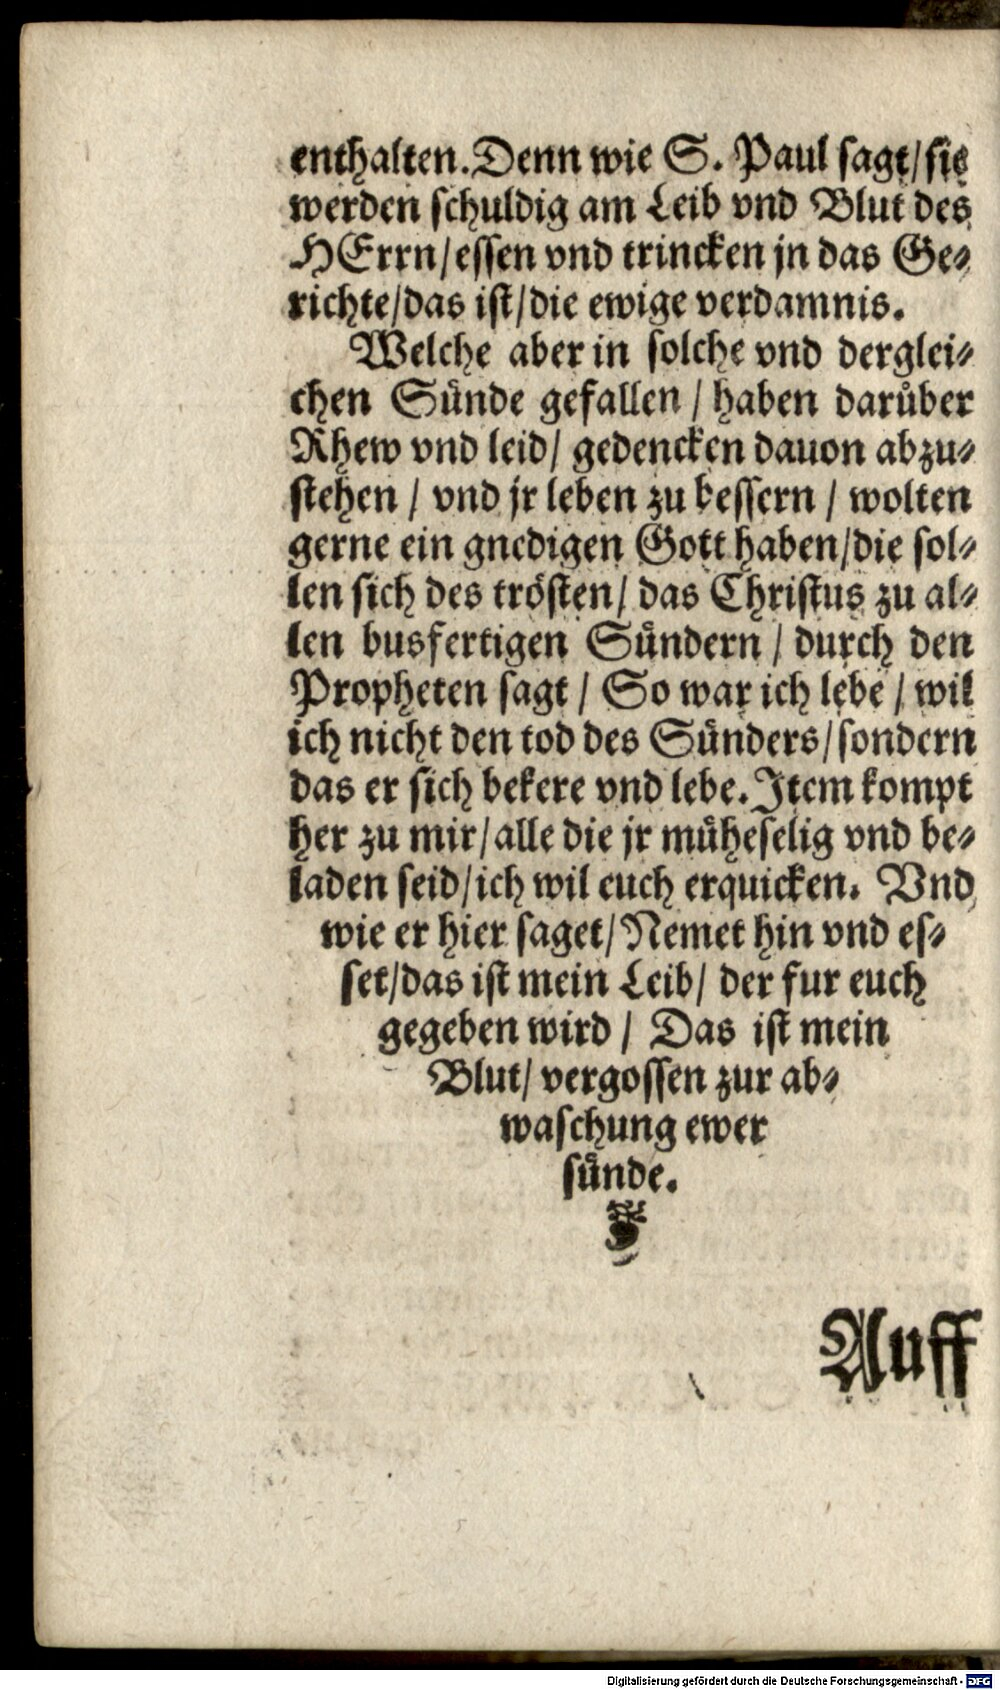 enthalten. Denn wie S. Paul sagt/ sie
werden schuldig am Leib vnd Blut des
HErrn/ essen vnd trincken jn das Ge⸗
richte/ das ist/ die ewige verdamnis.
Welche aber in solche vnd derglei⸗
chen Suͤnde gefallen / haben daruͤber
Rhew vnd leid/ gedencken dauon abzu⸗
stehen / vnd jr leben zu bessern / wolten
gerne ein gnedigen Gott haben/ die sol⸗
len sich des troͤsten/ das Christus zu al⸗
len busfertigen Suͤndern / durch den
Propheten sagt / So war ich lebe / wil
ich nicht den tod des Suͤnders/ sondern
das er sich bekere vnd lebe. Item kompt
her zu mir/ alle die jr muͤheselig vnd be⸗
laden seid/ ich wil euch erquicken. Vnd
wie er hier saget/ Nemet hin vnd es⸗
set/ das ist mein Leib/ der fur euch
gegeben wird / Das ist mein
Blut/ vergossen zur ab⸗
waschung ewer
suͤnde.
Auff
Digitalisierung gefördert durch die Deutsche Forschungsgemeinschaft - DFG